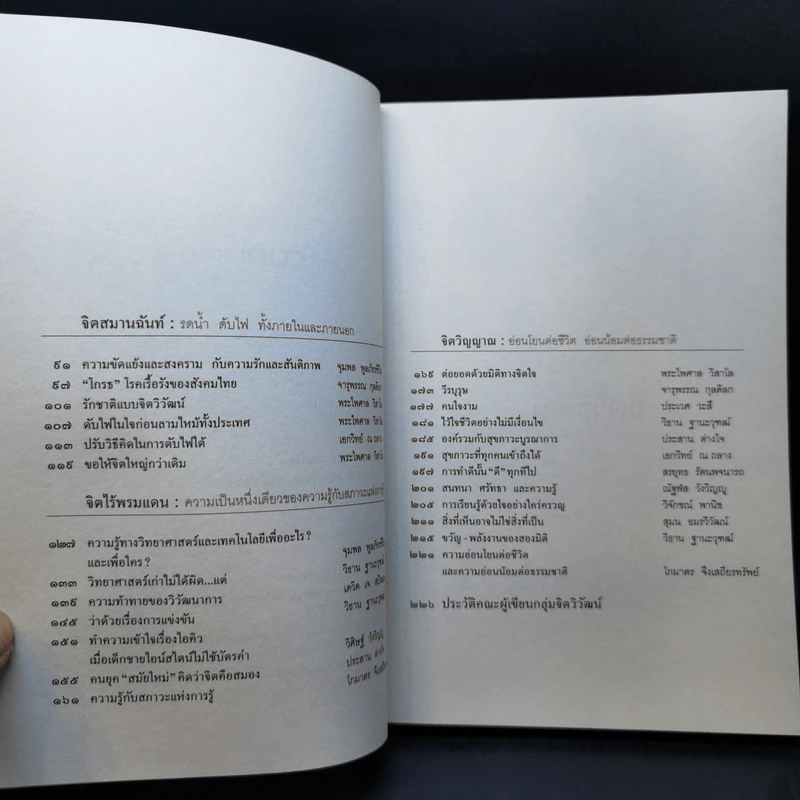 จิตสมานฉันท์ : รดน้ำ ดับไฟ ทั้งภายในและภายนอก
๙๑ ความขัดแย้งและสงคราม กับความรักและสันติภาพ จุมพล พูลภัทรชีวิน
๙๗ “โกรธ” โรคเรื้อรังของสังคมไทย จารุพรรณ กุลดิลก
๑๐๑ รักชาติแบบจิตวิวัฒน์ พระไพศาล วิสาโล
๑๐๗ ดับไฟในใจก่อนลามไหม้ทั้งประเทศ พระไพศาล วิสาโล
๑๑๓ ปรับวิธีคิดในการดับไฟใต้ เอกวิทย์ ณ ถลาง
๑๑๙ ขอให้จิตใหญ่กว่าเดิม พระไพศาล วิสาโล
จิตไร้พรมแดน : ความเป็นหนึ่งเดียวของความรู้กับสภาวะแห่งการรู้
๑๒๗ ความรู้ทางวิทยาศาสตร์และเทคโนโลยีเพื่ออะไร?
และเพื่อใคร? จุมพล พูลภัทรชีวิน
๑๓๓ วิทยาศาสตร์เก่าไม่ได้ผิด...แต่ วิธาน ฐานะวุฑฒ์
๑๓๙ ความท้าทายของวิวัฒนาการ เดวิด เจ.
๑๔๕ ว่าด้วยเรื่องการแข่งขัน วิธาน ฐานะวุฑฒ์
๑๕๑ ทำความเข้าใจเรื่องไอคิว
เมื่อเด็กชายไอน์สไตน์ไม่ใช้บัตรคำ วิศิษฐ์ วังวิญญู
๑๕๕ คนยุค “สมัยใหม่” คิดว่าจิตคือสมอง ประสาน ต่างใจ
๑๖๑ ความรู้กับสภาวะแห่งการรู้ โกมาตร จึงเสถียรทรัพย์
จิตวิญญาณ : อ่อนโยนต่อชีวิต อ่อนน้อมต่อธรรมชาติ
๑๖๙ ต่อยอดด้วยมิติทางจิตใจ พระไพศาล วิสาโล
๑๗๓ วีรบุรุษ จารุพรรณ กุลดิลก
๑๗๗ คนใจงาม ประเวศ วะสี
๑๘๑ ไว้ใจชีวิตอย่างไม่มีเงื่อนไข วิธาน ฐานะวุฑฒ์
๑๘๕ องค์รวมกับสุขภาวะบูรณาการ ประสาน ต่างใจ
๑๙๑ สุขภาวะที่ทุกคนเข้าถึงได้ เอกวิทย์ ณ ถลาง
๑๙๗ การทำดีนั้น “ดี” ทุกทีไป สรยุทธ รัตนพจนารถ
๒๐๑ สนทนา ศรัทธา และความรู้ ณัฐฬส วังวิญญู
๒๐๕ การเรียนรู้ด้วยใจอย่างใคร่ครวญ วิจักขณ์ พานิช
๒๑๑ สิ่งที่เห็นอาจไม่ใช่สิ่งที่เป็น สุมน อมรวิวัฒน์
๒๑๕ ขวัญ-พลังงานของสองมิติ วิธาน ฐานะวุฑฒ์
๒๒๑ ความอ่อนโยนต่อชีวิต
และความอ่อนน้อมต่อธรรมชาติ โกมาตร จึงเสถียรทรัพย์
๒๒๖ ประวัติคณะผู้เขียนกลุ่มจิตวิวัฒน์